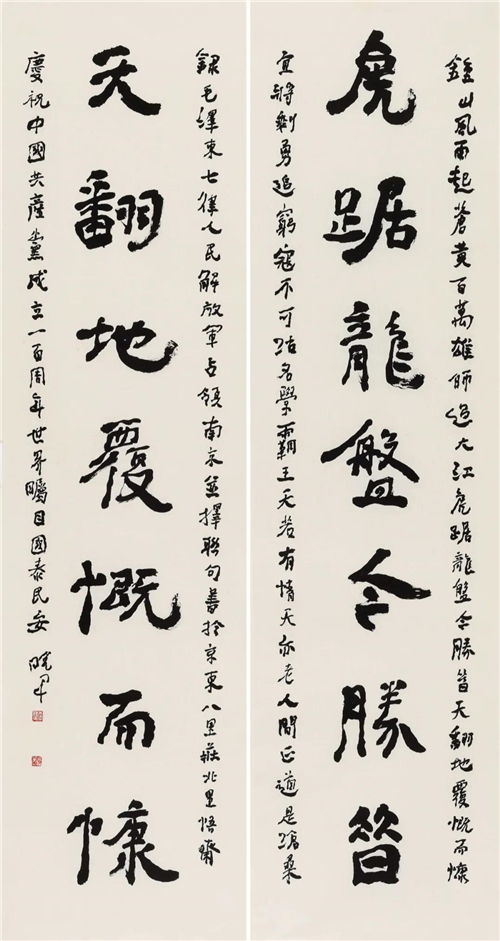 鍾山風雨起蒼黃百萬雄師過大江虎踞龍盤今勝昔天翻地覆慨而慷
虎踞龍盤今勝昔
宜將剩勇追窮寇不可沽名學霸王天若有情天亦老人間正道是滄桑
錄毛澤東七律人民解放軍占領南京並擇聯句書於京東八里莊北里悟齋
天翻地覆慨而慷
慶祝中國共產黨成立一百周年世界矚目國泰民安